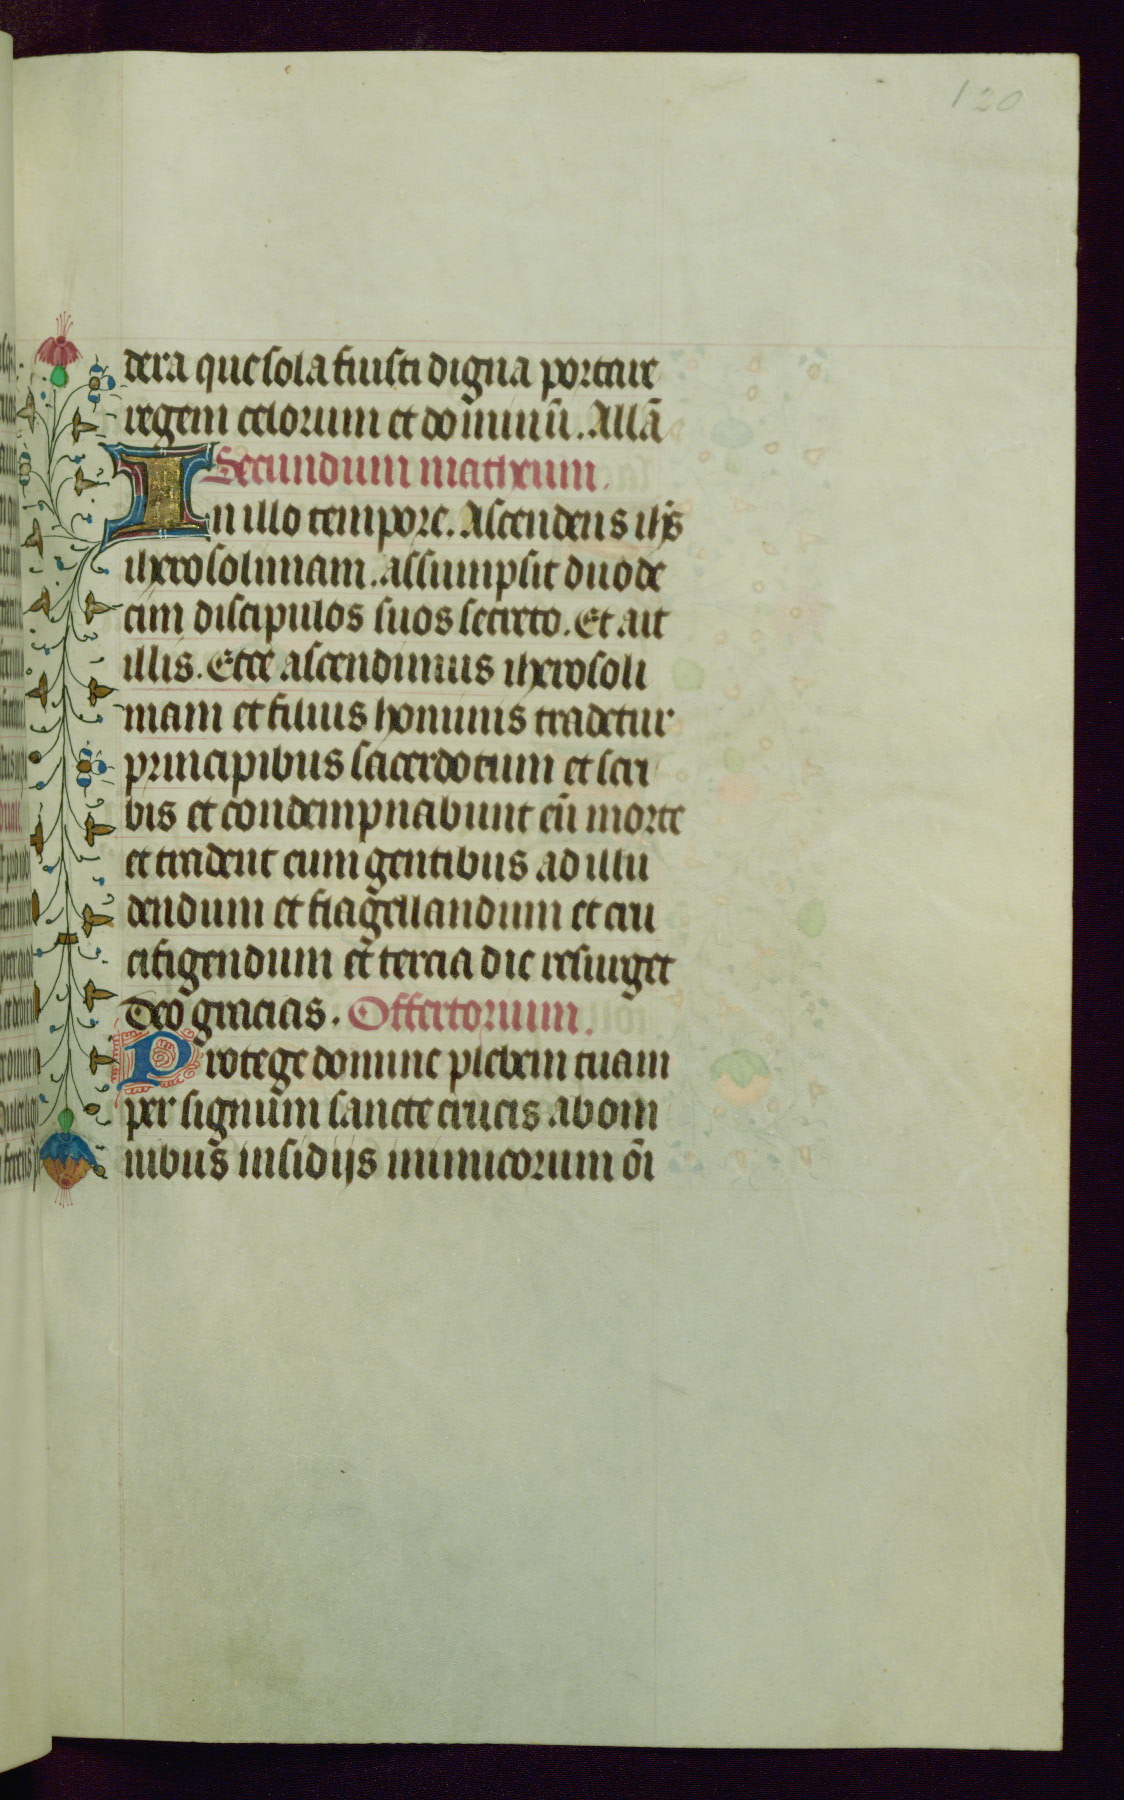 120
dera que sola fuisti digna portare
regem celorum et dominū. Allā
Secundum matheum.
In illo tempore. Ascendens ihs̄
iherosolimam. assumpsit duode
cim discipulos suos secreto. Et ait
illis. Ecce ascendimus iherosoli
mam et filius hominis tradetur
principibus sacerdotum et scri
bis et condempnabunt eū morte
et tradent eum gentibus ad illu
dendum et flagellandum et cru
cifigendum et tercia die resurget
Deo gracias. Offertorium.
Protege domine plebem tuam
per signum sancte crucis ab om
nibus insidijs inimicorum oī